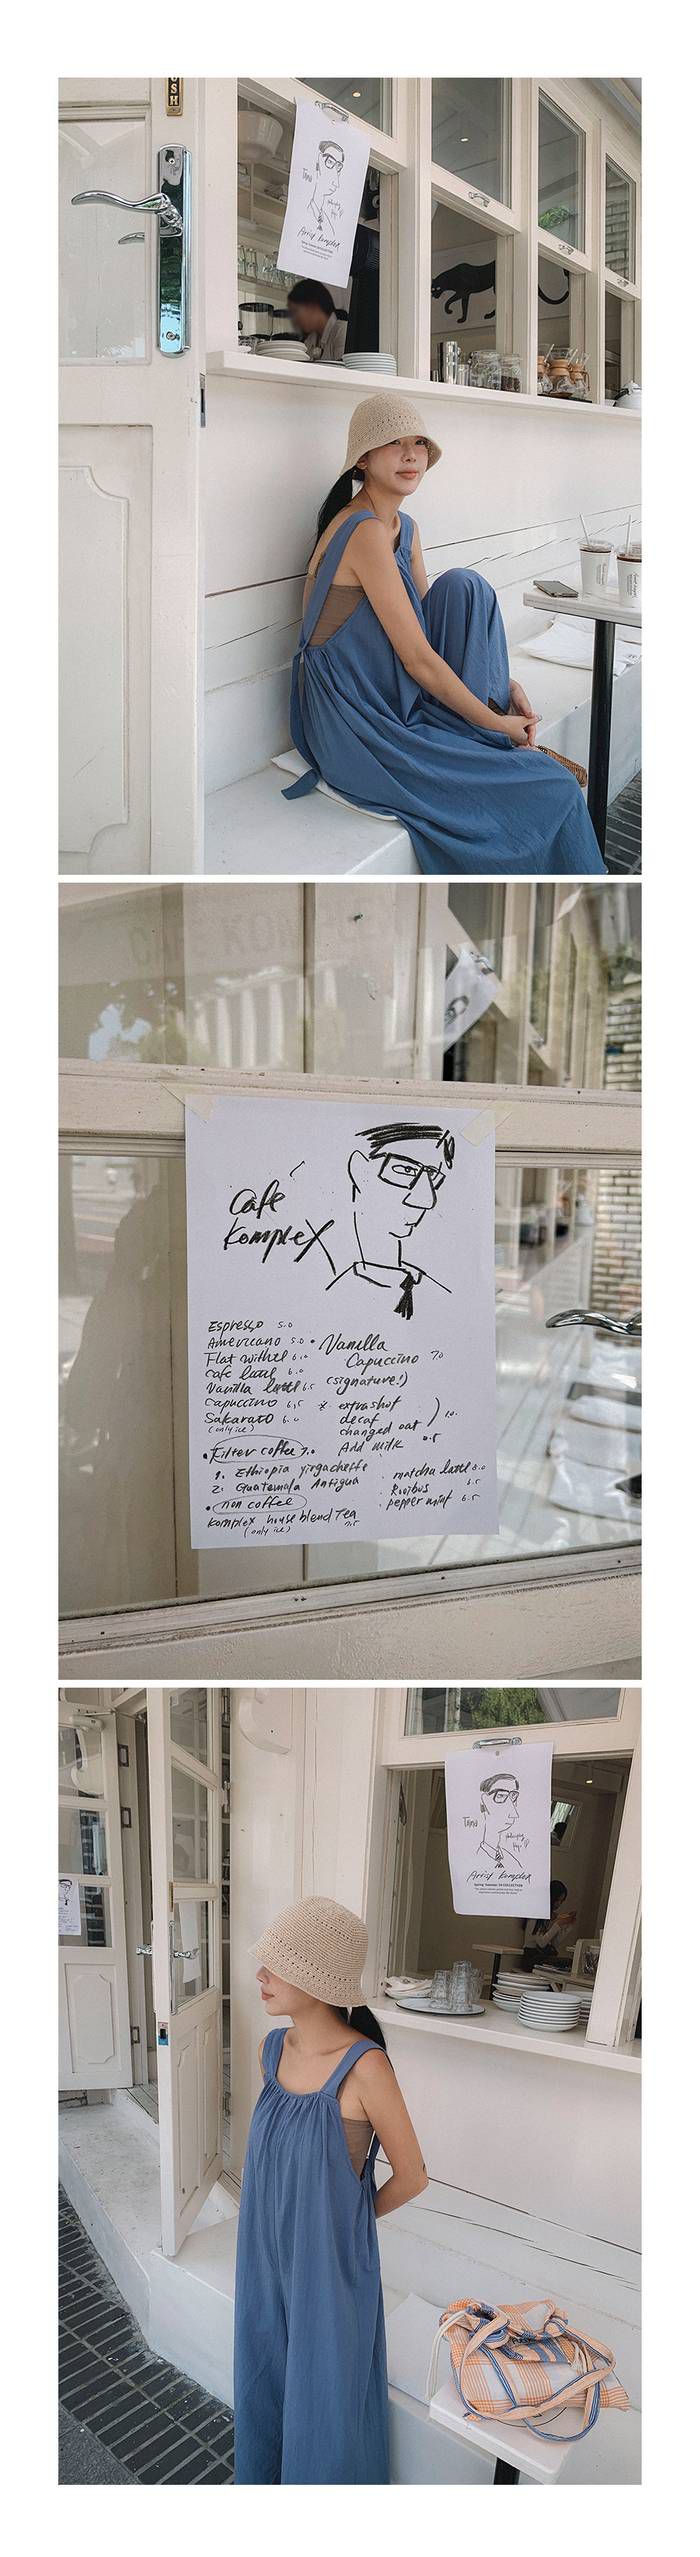 USH
Artist Komplex
Café
Komplex
Espresso 5.0
Americano 5.0
Flat withel 6.0
Cafe lattl 6.0
Vanilla lattl 6.5
Capuccino 6,5
Sakarato 6.0
(only ice)
• Vanilla
Capuccino 7.0
(signature!)
* extrashot
decaf
changed oat ) 1.0.
Add milk 0.5
• Filter coffee 7.0
1. Ethiopia yirgacheffe
2. Guatemala Antigua
• non coffee
Komplex house blend Tea
(only ice) 7.5
· matcha lattl 8.0
· Rooibos 6.5
· pepper mint 6.5
Artist Komplex